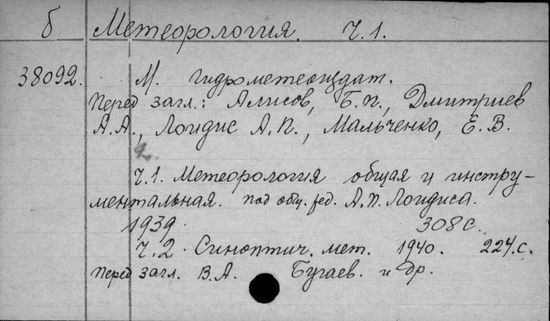 б Метеорология. Ч.1.
38092. М. гидрометеоиздат.
Перед загл.: Алисов, Б.П., Дмитриев
А.А., Лоидис А.П., Мальченко, Е.В.
Ч.1. Метеорология общая и инстру-
ментальная. под общ. ред. А.П. Лоидиса.
1939. 308 с.
Ч.2. Синоптич. мет. 1940. 224.с.
Перед загл. В.А. Бугаев. и др.